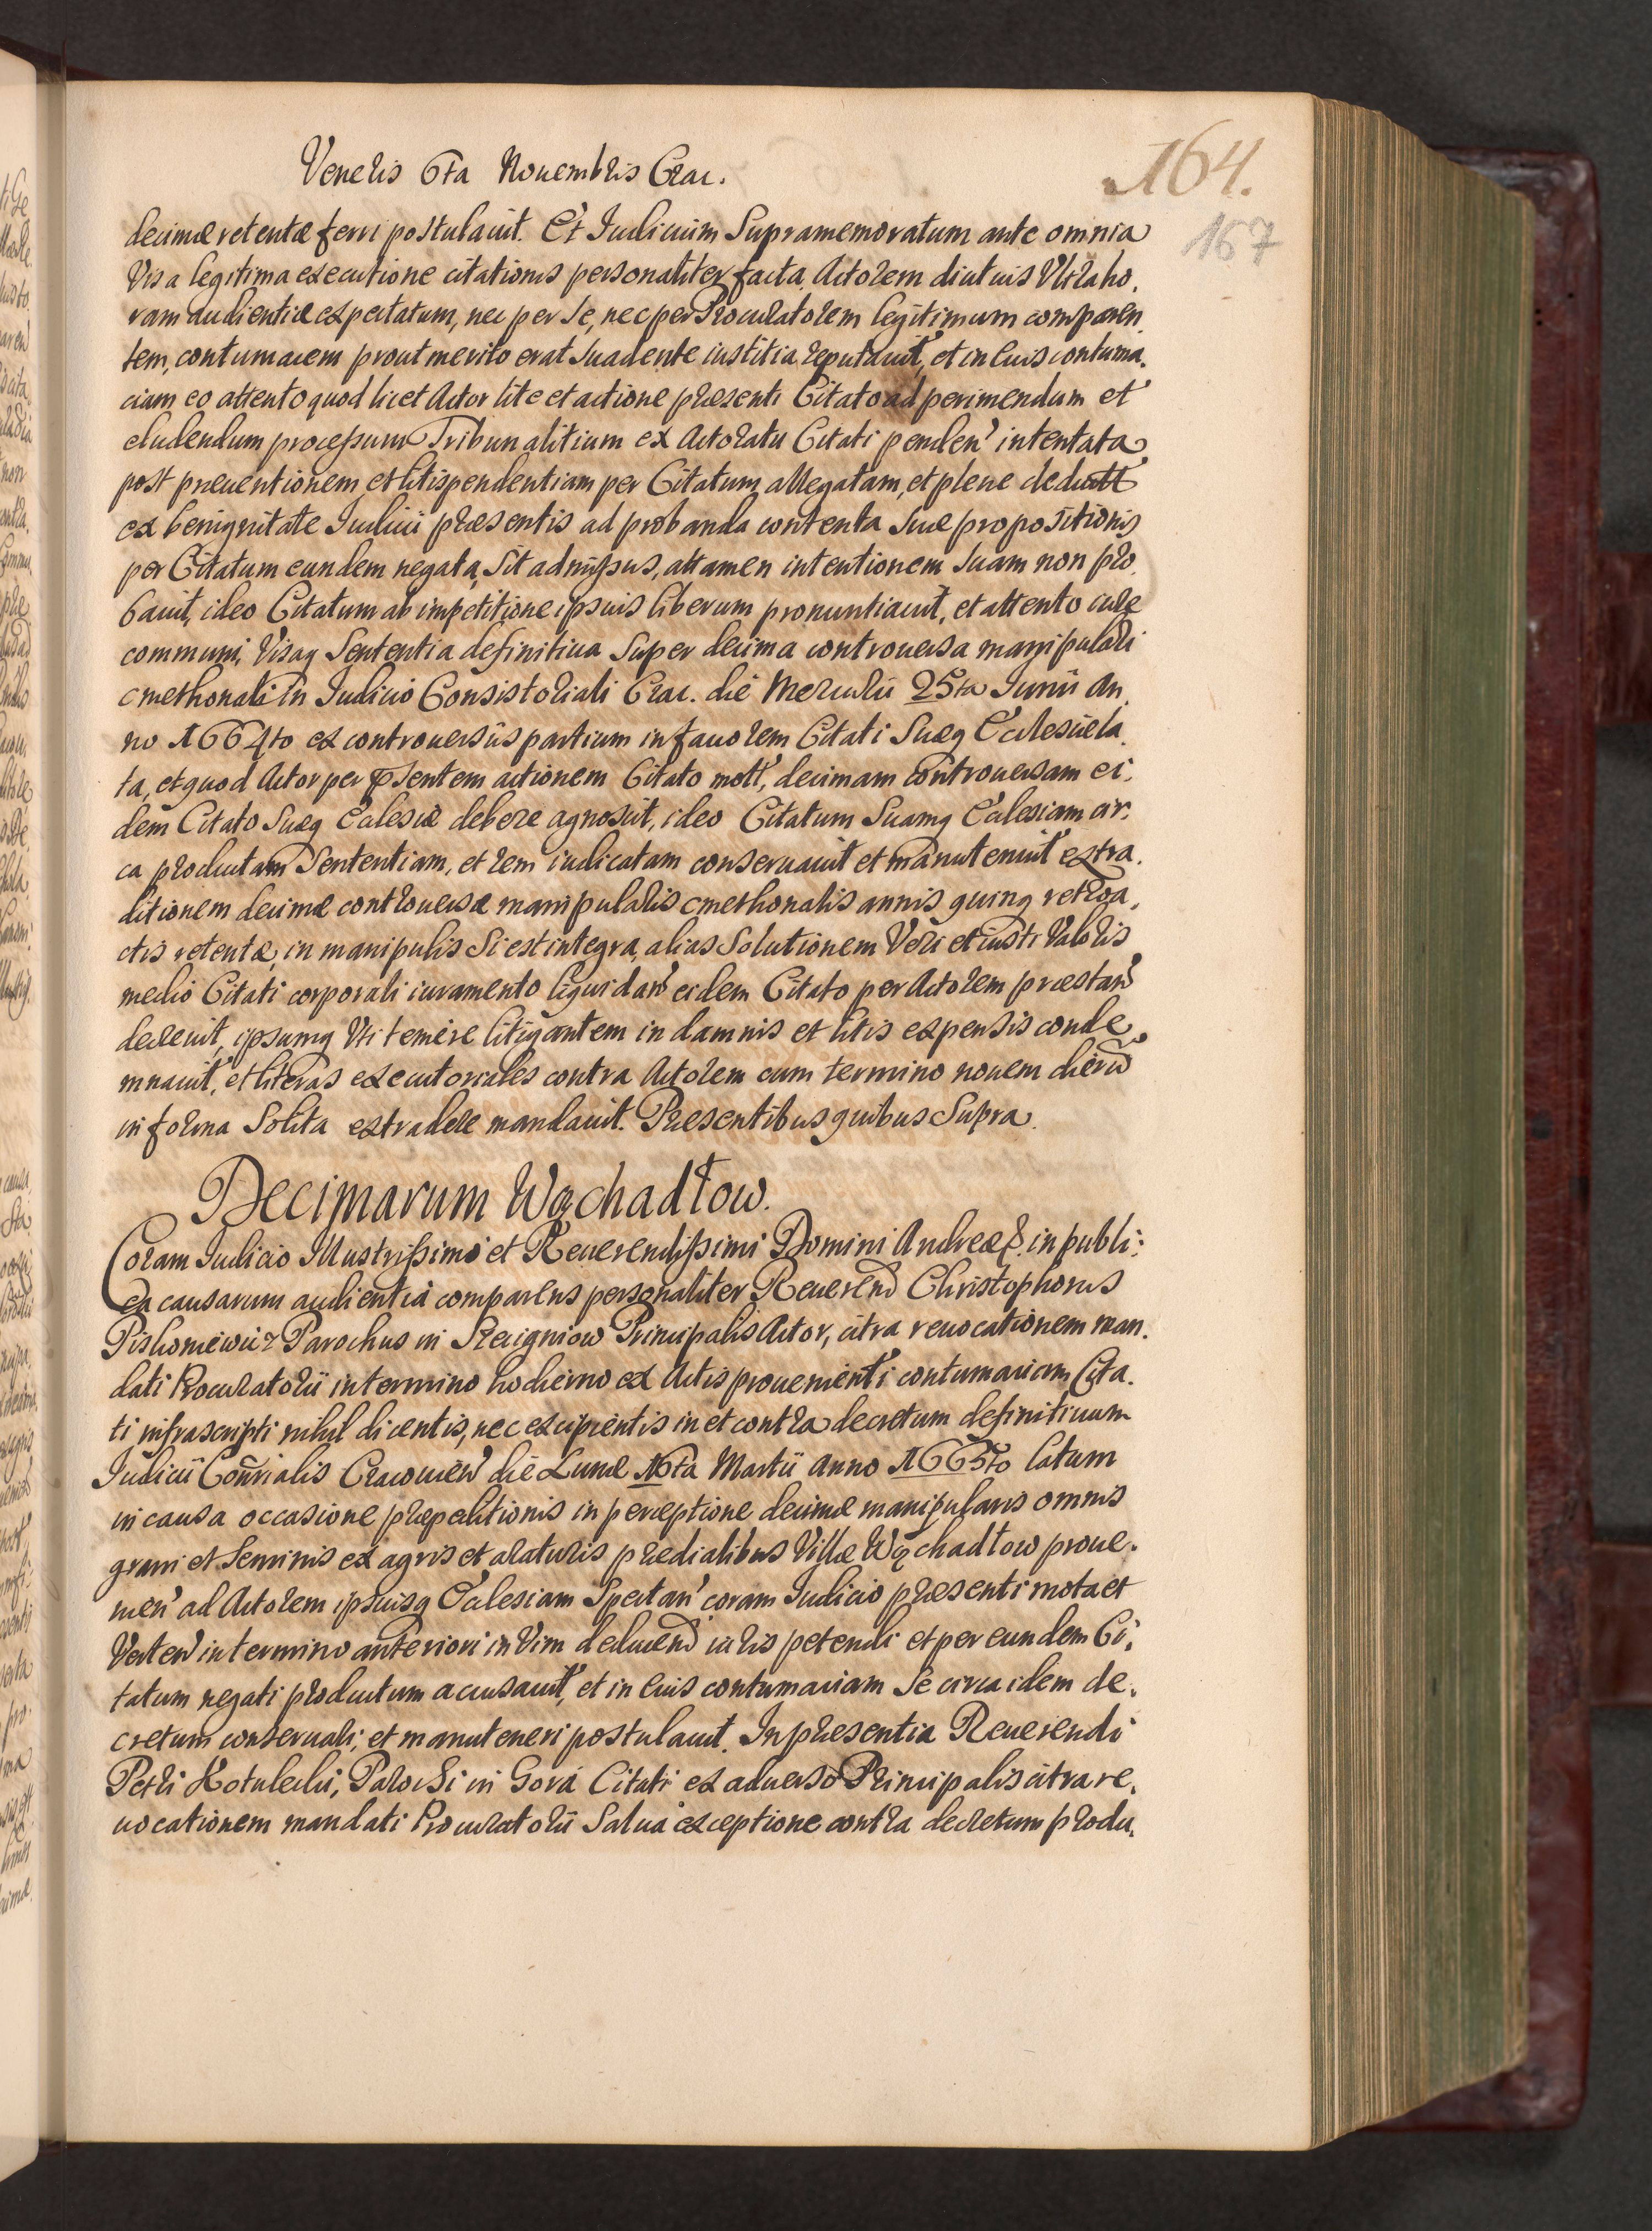 Veneris 6ta Nouembris Crac.
164.
167
decimæ retentæ ferri postulauit. Et Iudicium Supramemoratum ante omnia
Visa legitima executione citationis personaliter facta, Actorem diutius Vltra ho.
ram audientiæ expectatum, nec per se, nec per Procuratorem legitimum comparen
tem, contumacem prout merito erat Suadente iustitia reputauit, et in eius contuma.
ciam eo attento quod licet Actor lite et actione præsenti Citato ad perimendum et
eludendum processum Tribunalitium ex Actoratu Citati penden' intentata
post præuentionem et litispendentiam per Citatum allegatam, et plene deductt
ex benignitate Iudicii præsentis ad probanda contenta Suæ propositionis
per Citatum eundem negata, Sit admissus, attamen intentionem Suam non pro
bauit, ideo Citatum ab impetitione ipsuis liberum pronuntiauit, et attento iure
communi, Visaq Sententia definitiua Super decima controuersa manipulari
cmethonali in Iudicio Consistoriali Crac. die Mercurii 25ta Iunii An.
no 1664to ex controuersiis partium in fauorem Citati Suæq Ecclesiæ la.
ta, et quod Actor per pñsentem actionem Citato mott', decimam controuersam ei.
dem Citato Suæq Ecclesiæ debere agnoscit, ideo Citatum Suamq Ecclesiam cir.
ca productam Sententiam, et rem iudicatam conseruauit et manutenuit extra.
ditionem decimæ controuersæ manipularis cmethonalis annis quinq retroa.
ctis retentæ, in manipulis Si est integra, alias Solutionem Veri et iusti Valoris
medio Citati corporali iuramento liquidan' eidem Citato per Actorem præstan'
decreuit, ipsumq Vti temere litigantem in damnis et litis expensis conde.
mnauit, et literas executoriales contra Actorem cum termino nouem dierũ
in forma Solita extradere mandauit. Præsentibus quibus Supra.
Decimarum Wąchadłow.
Coram Iudicio Illustrissimi et Reuerendissimi Domini Andreæ &. in publi:
ca causarum audientia comparens personaliter Reueren' Christophorus
Piskoniewicz Parochus in Sreigniow Principalis Actor, citra reuocationem man.
dati Procuratorii in termino hodierno ex Actis prouenienti contumaciam Cita.
ti infrascripti nihil dicentis, nec excipientis in et contra decretum definitiuum
Iudicii Conrialis Cracouien' die Lunæ 16ta Martii Anno 1665to latum
in causa occasione præpeditionis in perceptione decimæ manipularis omnis
grani et Seminis ex agris et araturis prædialibus Villæ Wąchadłow proue.
nien' ad Actorem ipsuisq Ecclesiam Spectan' coram Iudicio præsenti mota et
Verten' in termino anteriori in Vim deducend' iuris petendi et per eundem Ci.
tatum negati productum accusauit, et in eius contumaciam Se circa idem de.
cretum conseruari, et manuteneri postulauit. In præsentia Reuerendi
Petri Kotulecki, Parochi in Gora Citati ex aduerso Principalis citra re.
uocationem mandati Procuratorii Salua exceptione contra decretum produ.